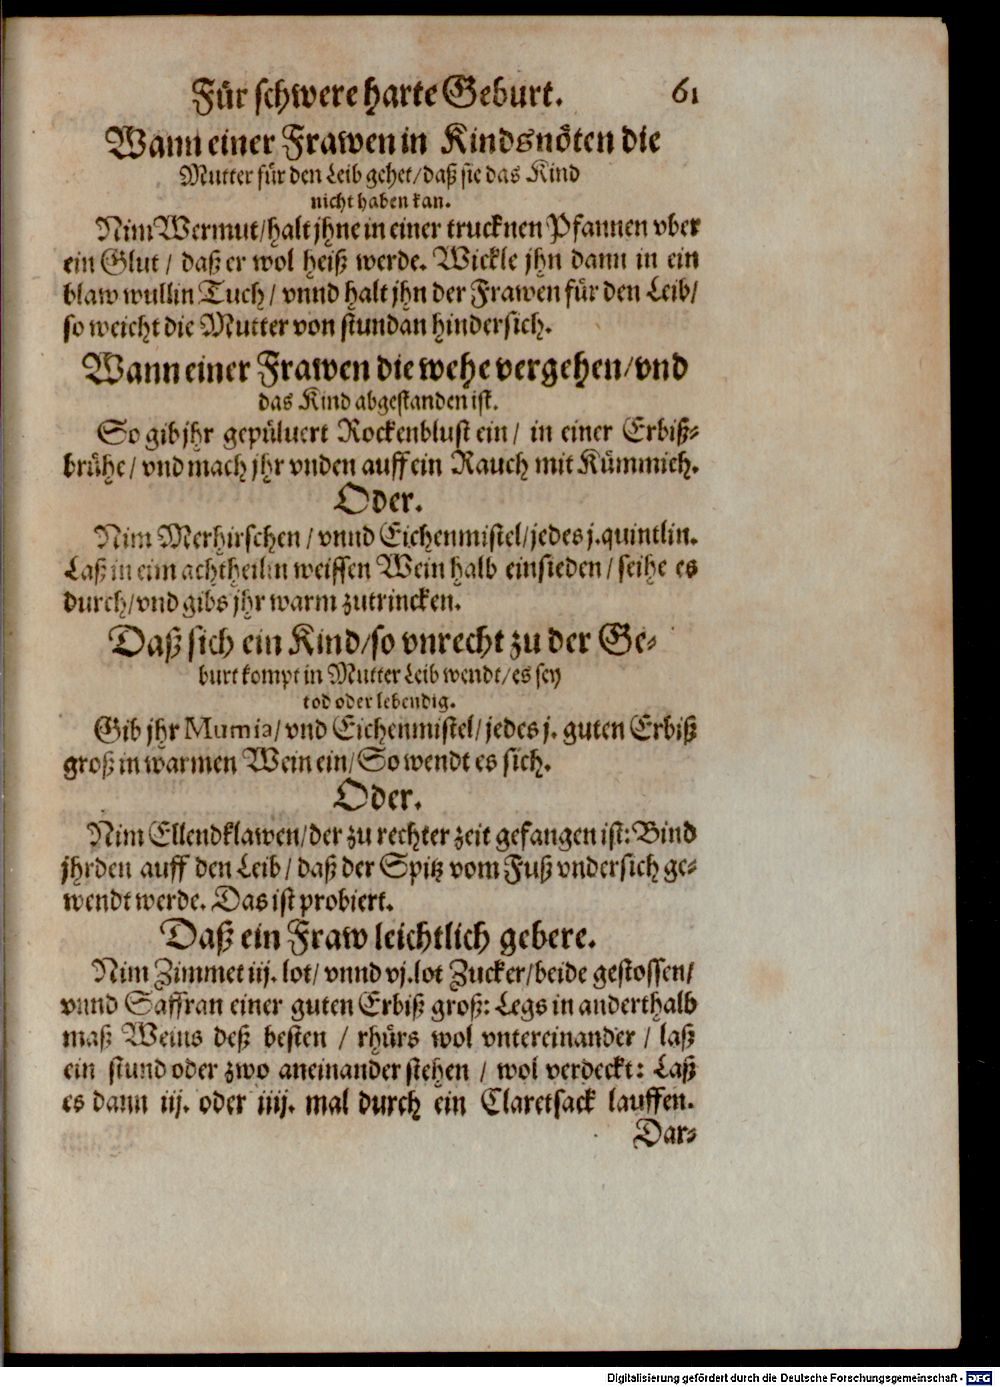 Für schwere harte Geburt. 61
Wann einer Frawen in Kindsnöten die
Mutter für den Leib gehet/ daß sie das Kind
nicht haben kan.
Nim Wermut/ halt jhne in einer trucknen Pfannen vber
ein Glut / daß er wol heiß werde. Wickle jhn dann in ein
blaw wullin Tuch / vnnd halt jhn der Frawen für den Leib/
so weicht die Mutter von stundan hindersich.
Wann einer Frawen die wehe vergehen/ vnd
das Kind abgestanden ist.
So gib jhr gepüluert Rockenblust ein / in einer Erbiß-
brühe / vnd mach jhr vnden auff ein Rauch mit Kümmich.
Oder.
Nim Merhirschen / vnnd Eichenmistel/ jedes j. quintlin.
Laß in eim achtheilin weissen Wein halb einsieden / seihe es
durch/ vnd gibs jhr warm zutrincken.
Daß sich ein Kind/ so vnrecht zu der Ge-
burt kompt in Mutter Leib wendt/ es sey
tod oder lebendig.
Gib jhr Mumia/ vnd Eichenmistel/ jedes j. guten Erbiß
groß in warmen Wein ein/ So wendt es sich.
Oder.
Nim Ellendklawen/ der zu rechter zeit gefangen ist: Bind
jhrden auff den Leib / daß der Spitz vom Fuß vndersich ge-
wendt werde. Das ist probiert.
Daß ein Fraw leichtlich gebere.
Nim Zimmet iij. lot/ vnnd vj. lot Zucker/ beide gestossen/
vnnd Saffran einer guten Erbiß groß: Legs in anderthalb
maß Weins deß besten / rhürs wol vntereinander / laß
ein stund oder zwo aneinander stehen / wol verdeckt: Laß
es dann iij. oder iiij. mal durch ein Claretsack lauffen.
Dar-
Digitalisierung gefördert durch die Deutsche Forschungsgemeinschaft - DFG